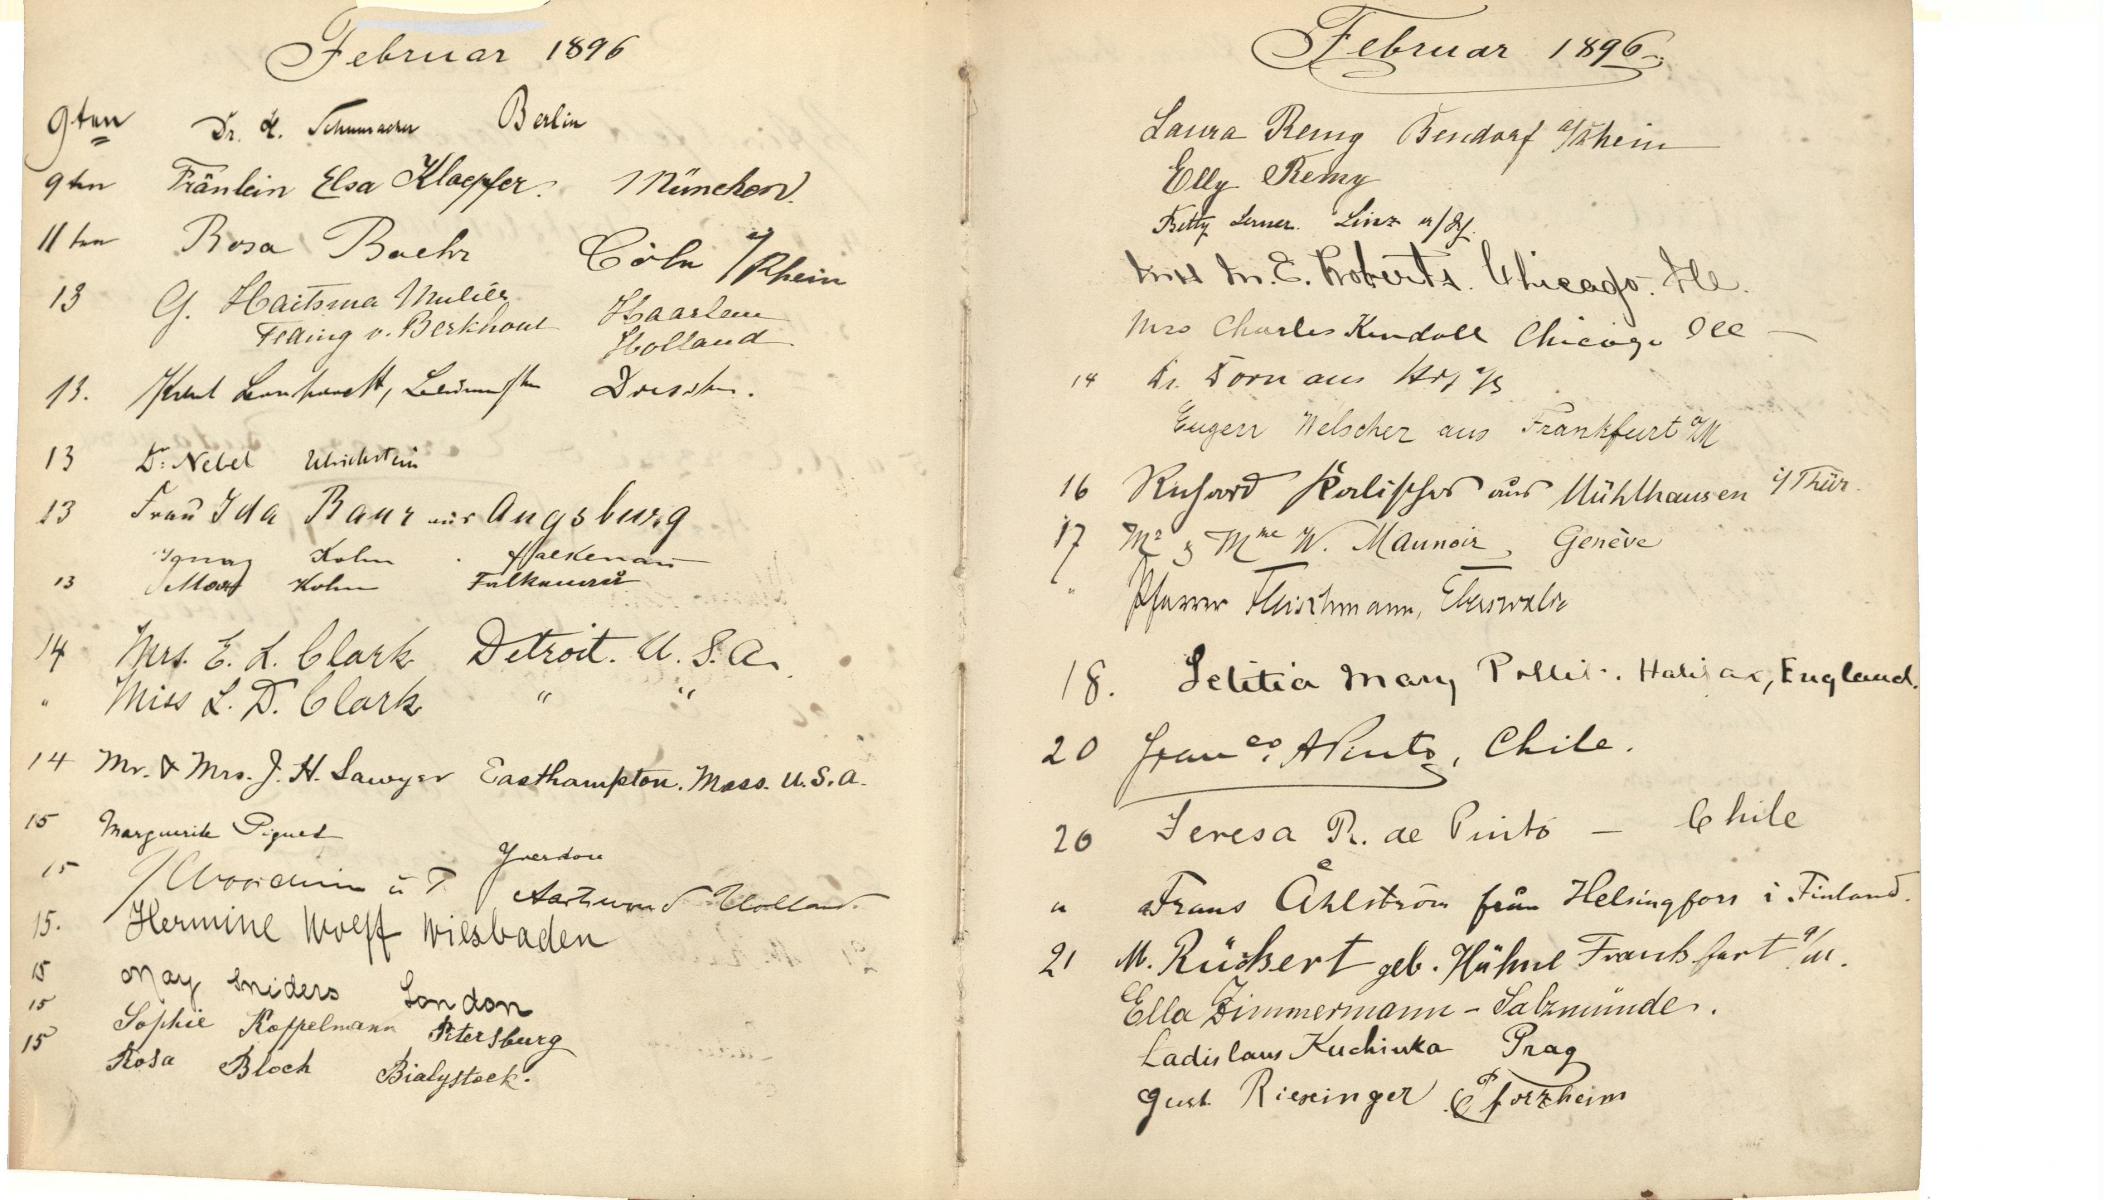 Februar 1896
9ten Dr. H. Schumacher Berlin
9ten Fräulein Elsa Kloepfer. München.
11ten Rosa Baehr Cöln a/Rhein
13 G. Haitsma Mulier Haarlem
v. Berkhout Holland
13. Dresden.
13 Dr. Nebel Ulrichstein
13 Frau Ida Baur aus Augsburg
Ignaz Kohn Falkenau
13 Kohn Falkenau
14 Mrs. E. L. Clark Detroit. U. S. A.
" Miss L. D. Clark " "
14 Mr. & Mrs. J. H. Sawyer Easthampton. Mass. U. S. A.
15 Marguerite Piguet Yverdon
15 Holland.
15. Hermine Wolff Wiesbaden
15 May Sniders London
15 Sophie Koppelmann Petersburg
15 Rosa Bloch Bialystock.
Februar 1896.
Laura Remy Bendorf a/Rhein
Elly Remy
Betty Lerner. Linz a/Rh.
Miss M. E. Roberts. Chicago. Ill.
Mrs Charles Kendall Chicago Ill
14 Dr. Dorn aus Hof a/S
Eugen Welscher aus Frankfurt a/M
16 Richard Kalischer aus Mühlhausen i/Thür.
17 Mr & Mme W. Maunoir, Genève
" Pfarrer Fleischmann, Eberswalde
18. Letitia Mary Halifax, England.
20 Franco. A Pinto, Chile.
20 Teresa R. de Pinto — Chile
" Frans Åhlström från Helsingfors i Finland.
21 M. Rückert geb. Hühne Frankfurt a/M.
Ella Zimmermann - Salzmünde.
Ladislaus Kuchinka Prag
Gust. Riexinger Pforzheim